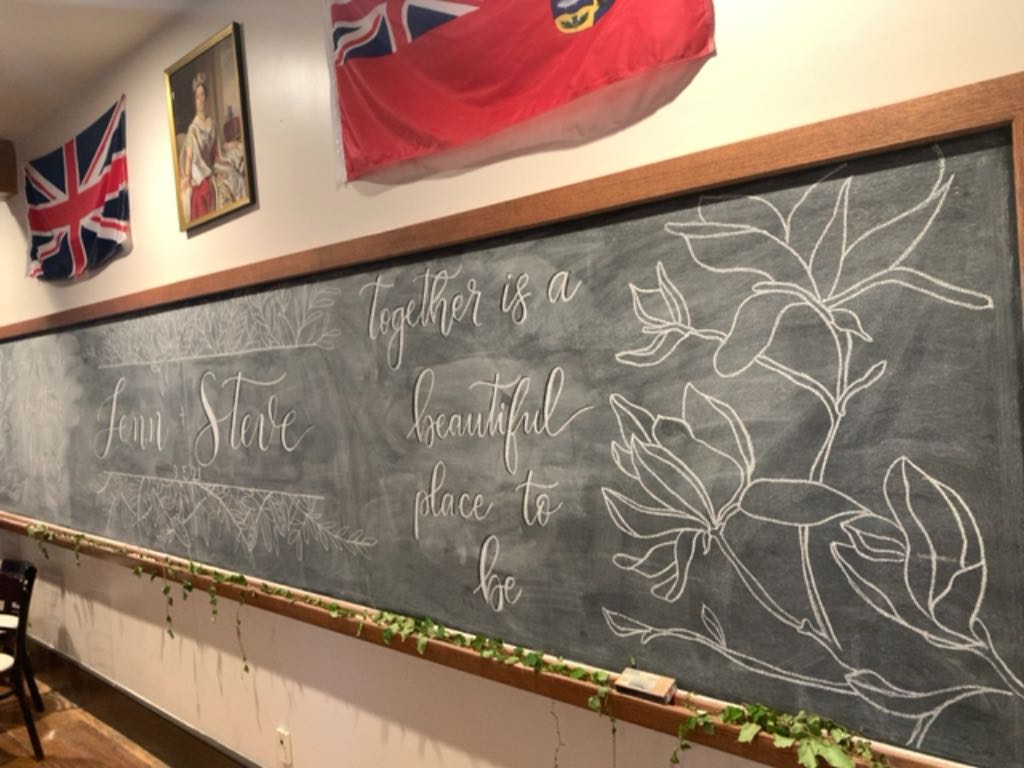 Jenn + Steve
together is a
beautiful
place to
be